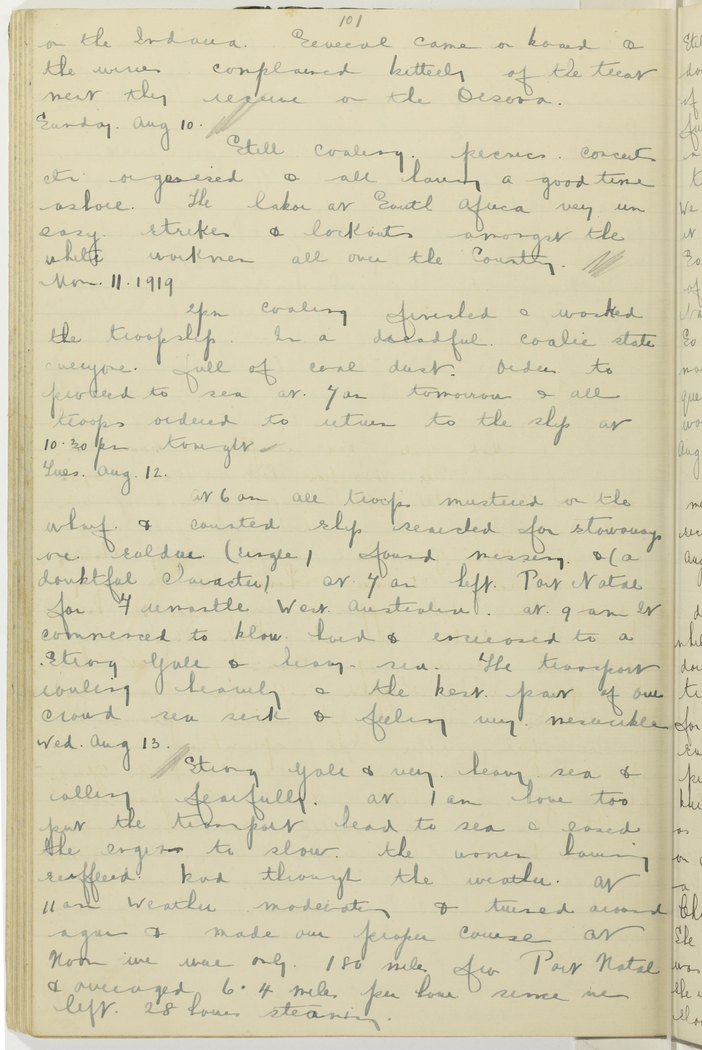 101
on the Indarra. Several came on board &
the wives complained bitterly of the treat
ment they receive on the Osova.
Sunday. Aug 10.
Still coaling. picnics. concerts
etc organised & all having a good time
ashore. The labor at South Africa very un
easy. strikes & lockouts amongst the
white workmen all over the Country.
Mon. 11. 1919
2pm coaling finished & washed
the troopship. In a dreadful. coalie state
everyone. full of coal dust. Orders to
proceed to sea at. 7 am tomorrow & all
troops ordered to return to the ship at
10.30 pm tonight
Tues. Aug. 12.
At 6 am all troops mustered on the
wharf. & counted ship searched for stowaways
one. soldier (single) found missing. & (a
doubtful character) at 7 am left. Port Natal
for Fremantle West Australia. at. 9 am it
commenced to blow. hard & increased to a
Strong Gale & heavy. sea. The transport
rolling heavily & the best. part of our
crowd sea sick & feeling very. miserable
Wed. Aug 13.
Strong Gale & very. heavy. sea &
rolling fearfully. at 1 am have too
put the transport head to sea & eased
the engines to slow. the women having
suffered. bad through the weather. At
11 am Weather moderating & turned around
again & made our proper course at
Noon we were only. 180 miles from Port Natal
& averaged 6.4 miles per hour since we
left. 28 hours steaming.